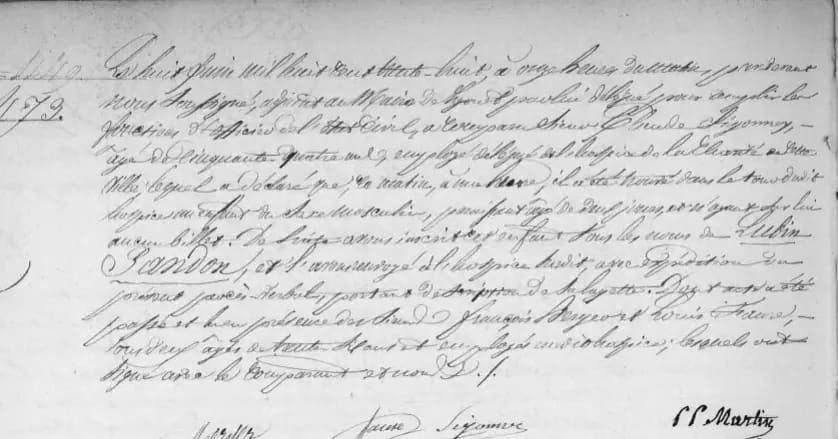 1449.
1573.
Le huit Juin mil huit cent trente-huit, à onze heures du matin, pardevant
nous soussigné, adjoint au Maire de Lyon et par lui délégué pour remplir les
fonctions d'officier de l'état civil, a comparu Sieur Claude
âgé de cinquante-quatre ans, employé délégué de l'hospice de la Charité de cette
Ville, lequel a déclaré que, ce matin, à une heure, il a été trouvé dans le tour dudit
hospice un enfant du sexe masculin, paraissant âgé de deux jours, et n'ayant sur lui
aucun billet. De suite avons inscrit cet enfant sous les noms de Lubin
Sandon, et l'avons renvoyé à l'hospice susdit, avec expédition du
présent procès-verbal, portant description de sa layette. Dont acte a été
passé et lu en présence des Sieurs françois et Louis Faure,
tous deux âgés de trente ans et employés audit hospice; lesquels ont
signé avec le comparant et nous ./.
Faure P P Martin